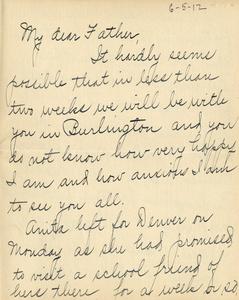 6-5-12
My dear Father,
It hardly seems
possible that in less than
two weeks we will be with
you in Burlington and you
do not know how very happy
I am and how anxious I am
to see you all.
Anita left for Denver on
Monday as she had promised
to visit a school friend of
hers there for a week or so